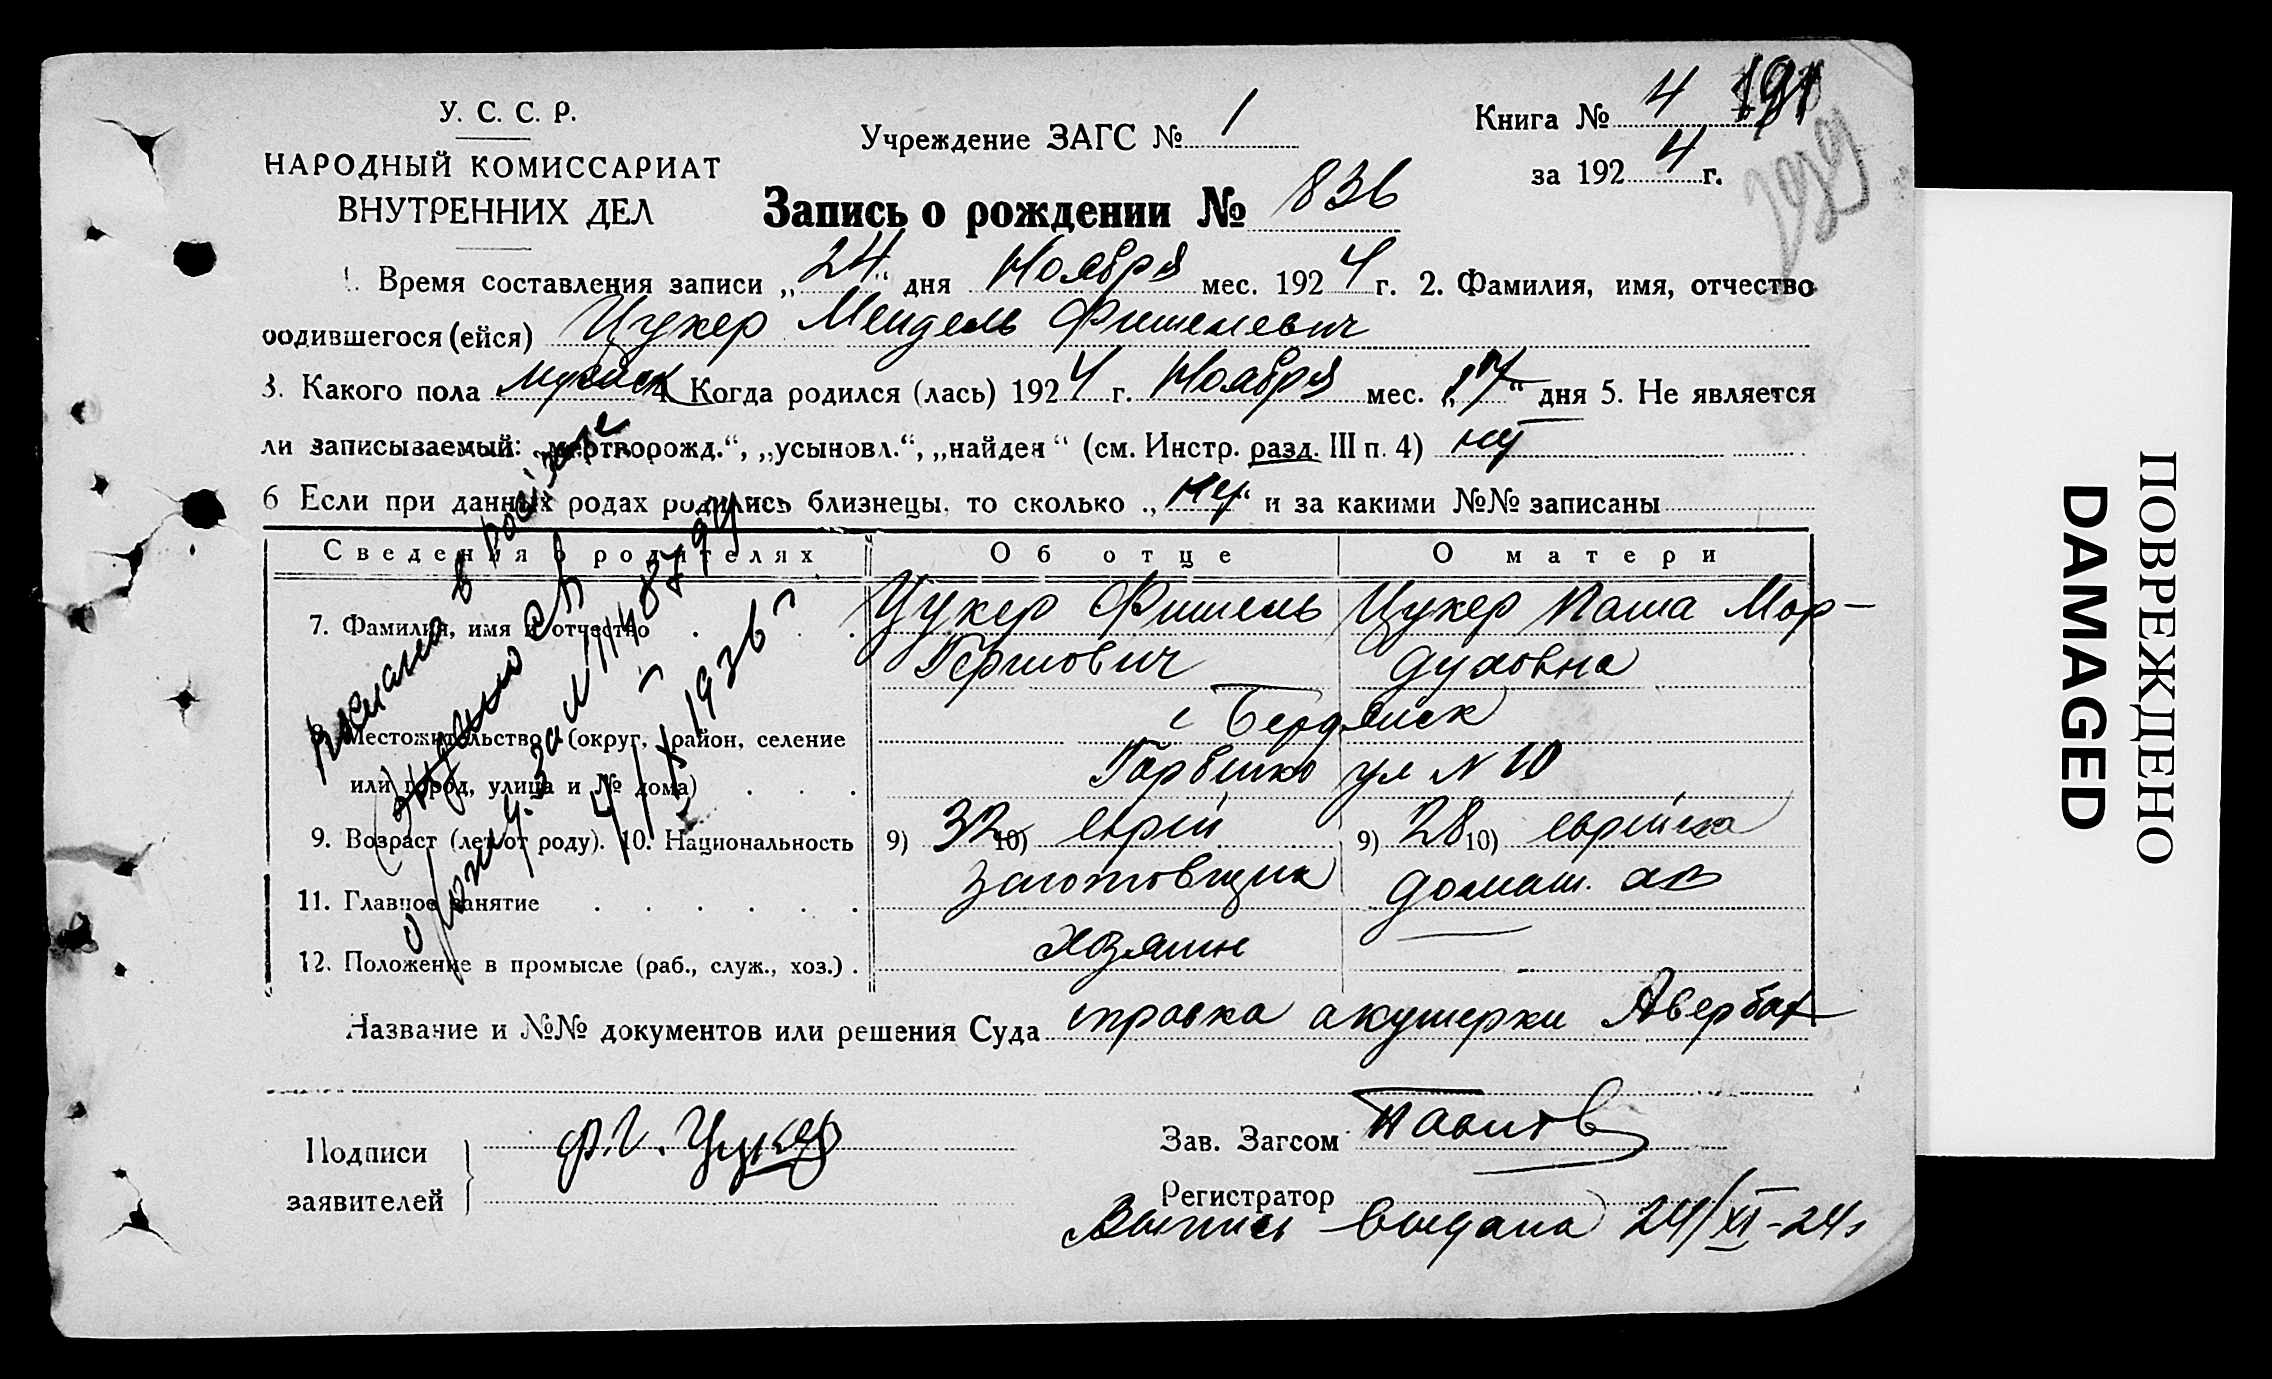 У. С. С. Р.
НАРОДНЫЙ КОМИССАРИАТ
ВНУТРЕННИХ ДЕЛ
Учреждение ЗАГС № 1
Книга № 4
за 1924 г.
Запись о рождении № 836
1. Время составления записи „24“ дня Ноября мес. 1924 г. 2. Фамилия, имя, отчество
родившегося (ейся) Цукер Мендель Фишелевич
3. Какого пола мужск 4. Когда родился (лась) 1924 г. Ноября мес. „17“ дня 5. Не является
ли записываемый: „мертворожд.“, „усыновл.“, „найден“ (см. Инстр. разд. III п. 4) нет
6 Если при данных родах родились близнецы, то сколько „нет“ и за какими №№ записаны
Сведения о родителях Об отце О матери
7. Фамилия, имя и отчество Цукер Фишель Цукер Паша Мор-
Гершович духовна
8. Местожительство (округ, район, селение г Бердянск
или город, улица и № дома) ул N 10
9. Возраст (лет от роду). 10. Национальность 9) 32 10) еврей 9) 28 10) еврейка
11. Главное занятие Заготовщик домаш. хоз
12. Положение в промысле (раб., служ., хоз.) хозяин
Название и №№ документов или решения Суда справка акушерки Авербах
Подписи
заявителей
Ф. Г. Цукер
Зав. Загсом
Регистратор
Выпись выдана 24/XI-24г
ПОВРЕЖДЕНО
DAMAGED